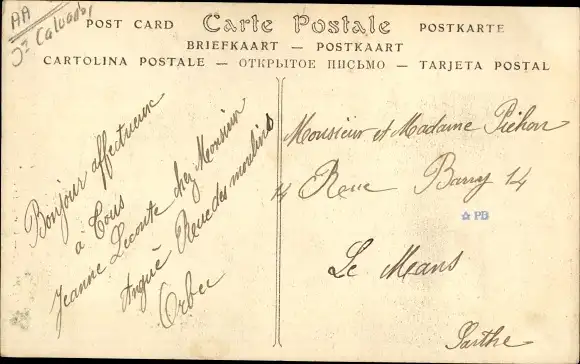 AA
Jn Calvados
POST CARD Carte Postale POSTKARTE
BRIEFKAART — POSTKAART
CARTOLINA POSTALE — ОТКРЫТОЕ ПИСЬМО — TARJETA POSTAL
Bonjour affectueux
à Tous
Jeanne Leconte chez Monsieur
Angué Rue des moulins
Orbec
Monsieur et Madame Pichon
14 Rue Barry 14
PB
Le Mans
Sarthe